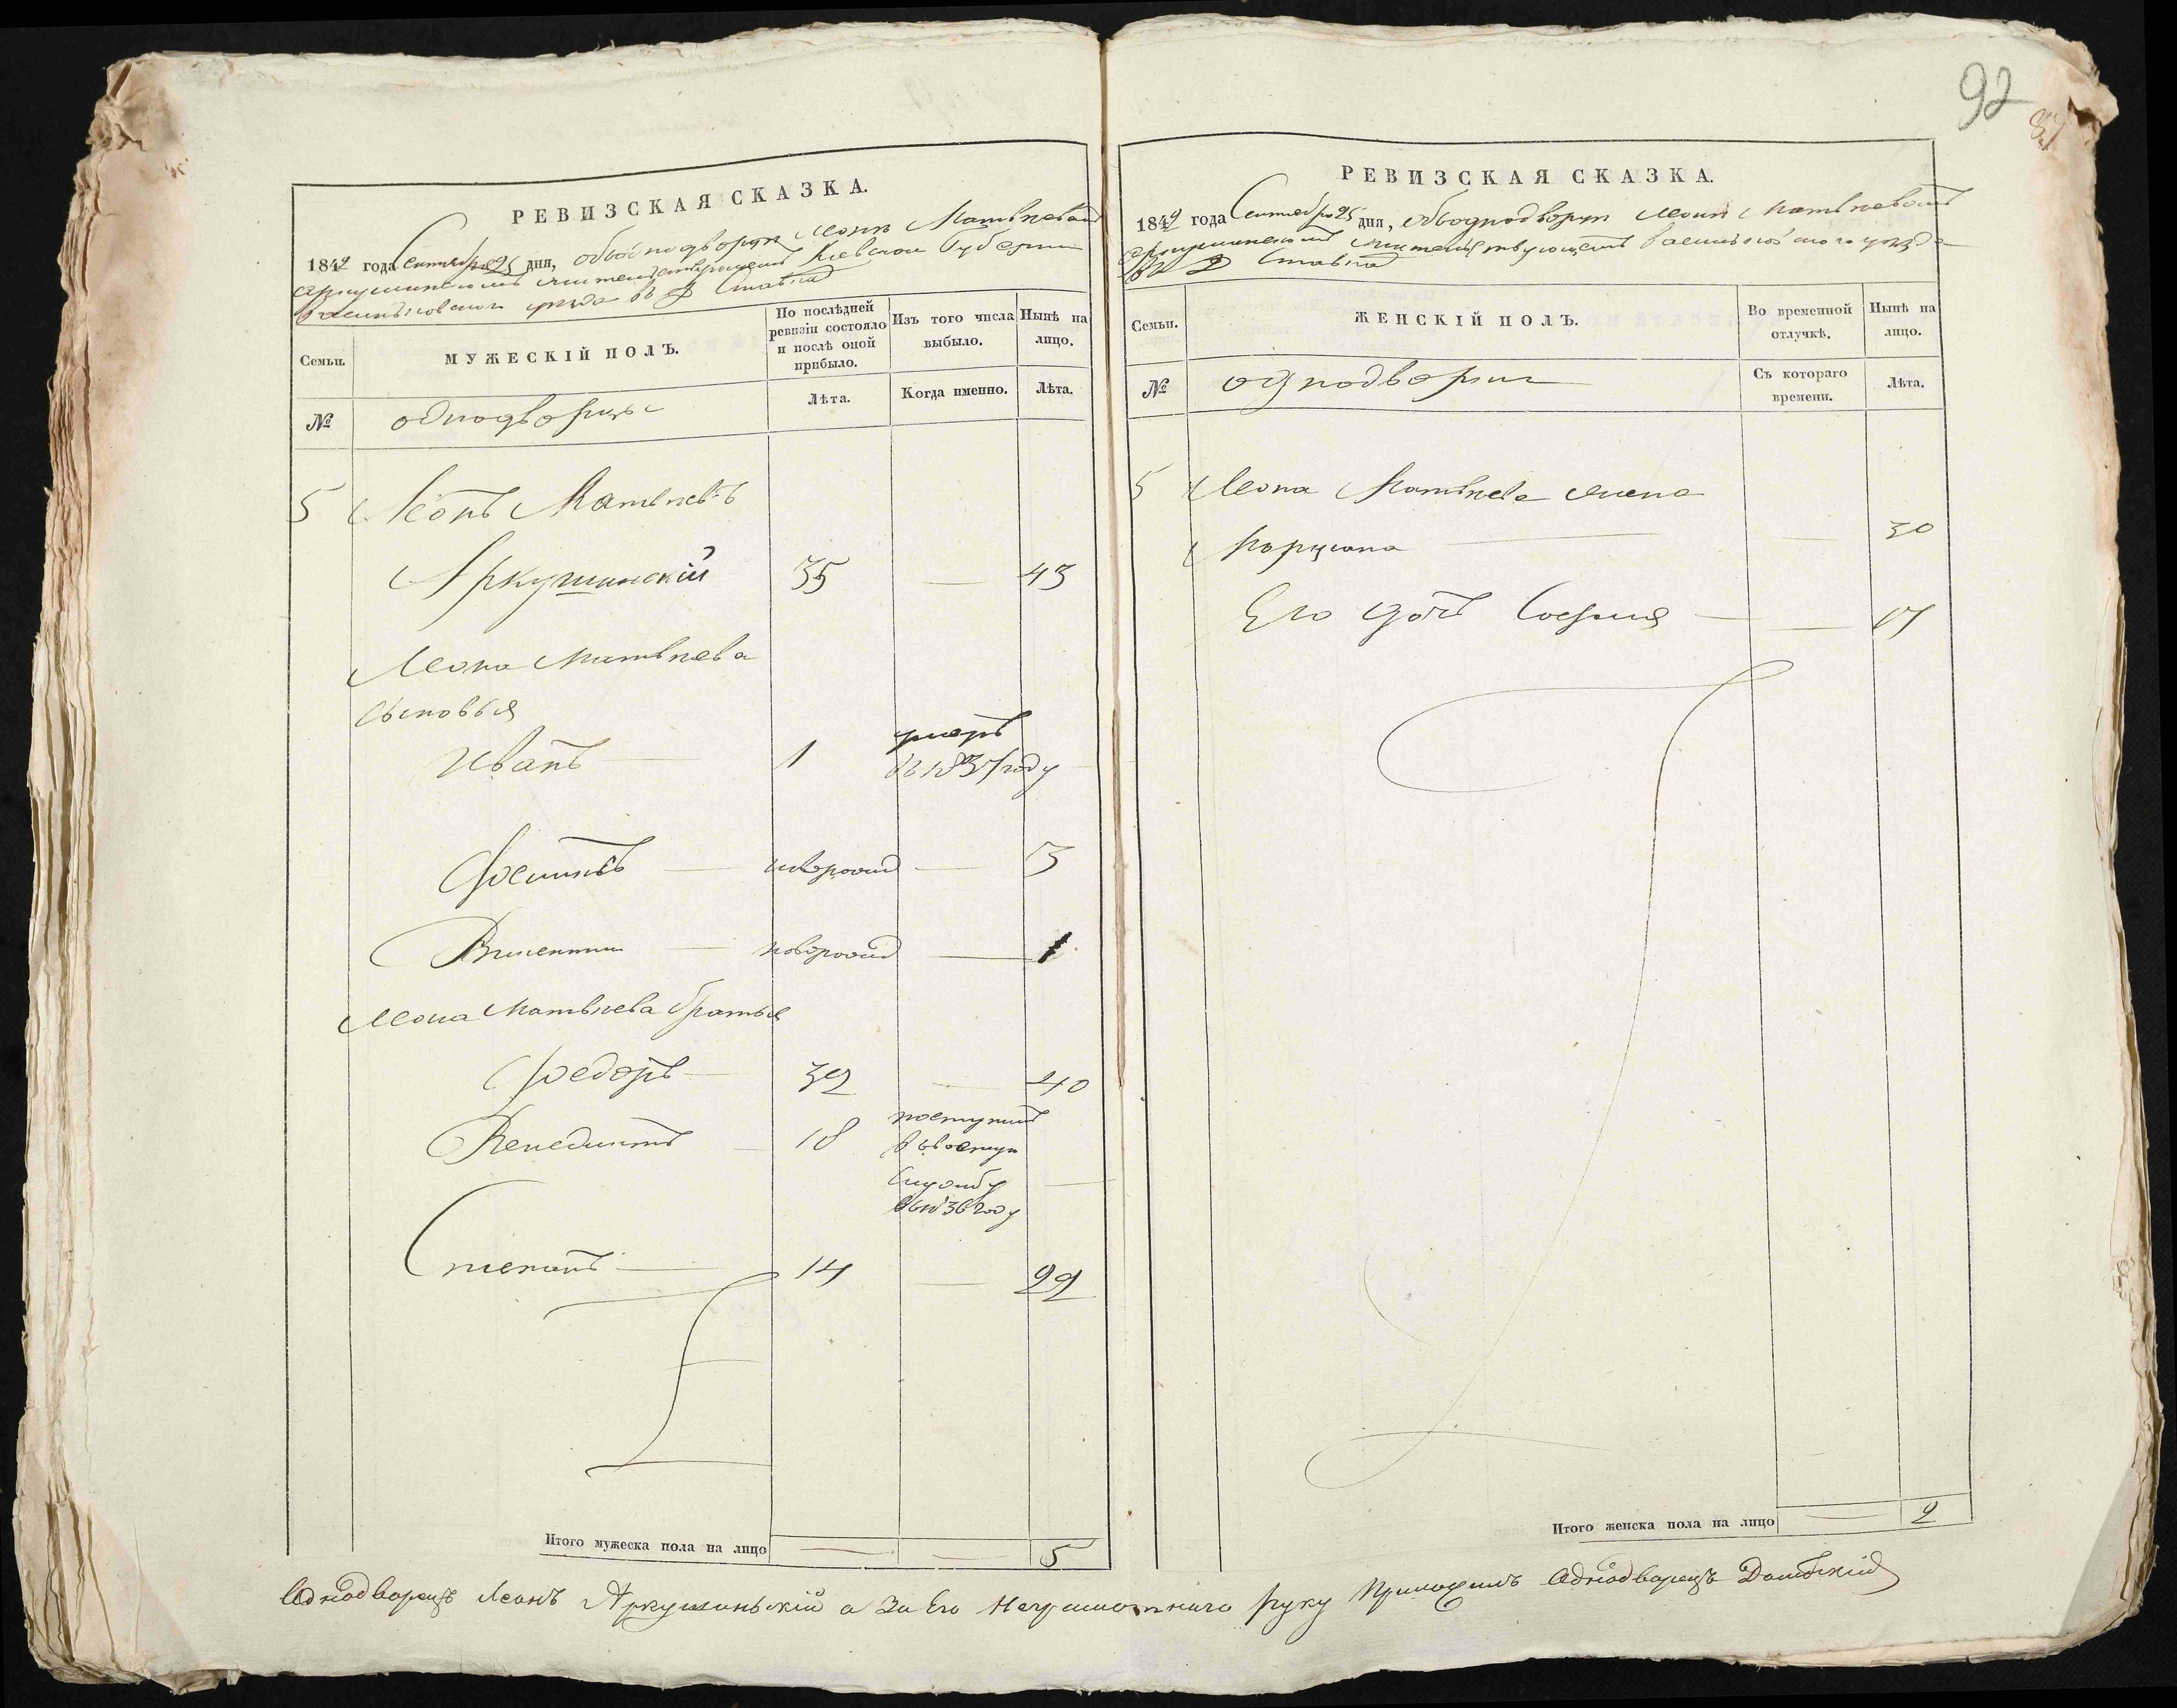 92
РЕВИЗСКАЯ СКАЗКА.
1842 года Сентября 25 дня, объ однодворцѣ Леонѣ Матвѣевомъ
Аркушинскомъ жительствующемъ Кіевской Губерніи
Васильковского уѣзда въ Д Ставка
Семьи.
МУЖЕСКІЙ ПОЛЪ.
По послѣдней
ревизіи состояло
и послѣ оной
прибыло.
Изъ того числа
выбыло.
Нынѣ на
лицо.
№
однодворцы
Лѣта.
Когда именно.
Лѣта.
5 Леонъ Матвѣевъ
Аркушинскій 35 — 43
Леона Матвѣева
сыновья
Иванъ — 1 умеръ
въ 1837 году
Фостинъ — новорожд — 3
Викентий — новорожд — 1
Леона Матвѣева братья
Федоръ — 32 — 40
Венедиктъ — 18 поступилъ
в военную
службу
в 1836 году
Степанъ — 14 — 22
Итого мужеска пола на лицо — — 5
РЕВИЗСКАЯ СКАЗКА.
1842 года Сентября 25 дня, объ однодворцѣ Леонѣ Матвѣевомъ
Аркушинскомъ жительствующемъ Васильковского уѣзда
въ Д Ставка
Семьи.
ЖЕНСКІЙ ПОЛЪ.
Во временной
отлучкѣ.
Нынѣ на
лицо.
№
однодворки
Съ котораго
времени.
Лѣта.
5 Леона Матвѣева жена
Марцяна — — 30
Его дочъ София — — 17
Итого женска пола на лицо — 2
Аднодворецъ Леонъ Аркушиньскій а За Его Неграмотнаго руку Приложилъ Аднодворецъ Домбскій